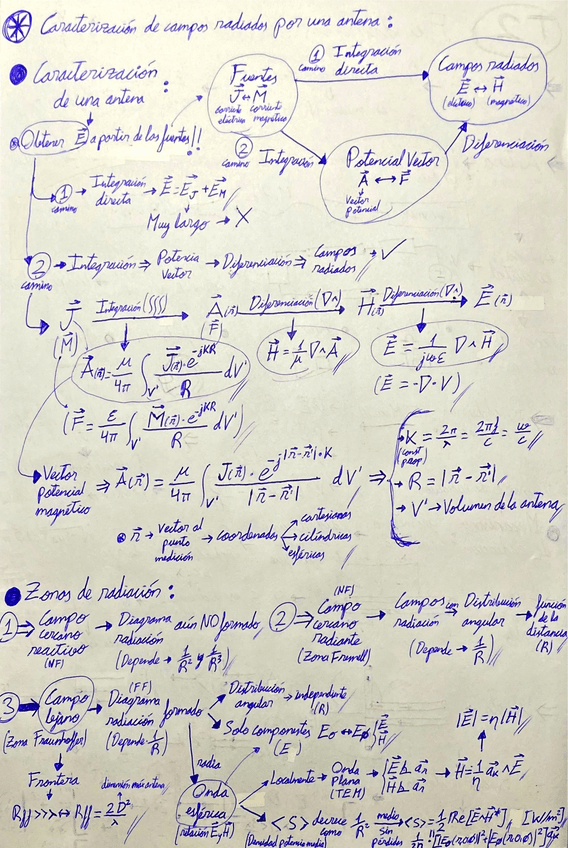 Caracterización de campos radiados por una antena:
Caracterización de una antena
Obtener E⃗ a partir de las fuentes!!
Fuentes
J⃗ ↔ M⃗
corriente eléctrica corriente magnética
① camino Integración directa
Campos radiados
E⃗ ↔ H⃗
(eléctrico) (magnético)
② camino Integración
Potencial Vector
A⃗ ↔ F⃗
Vector Potencial
Diferenciación
① camino → Integración directa → E⃗ = E⃗_J + E⃗_M
Muy largo → X
② camino → Integración → Potencia Vector → Diferenciación → Campos radiados → ✓
J⃗ (M⃗) Integración (∫∫∫) → A⃗(r⃗) (F⃗) Diferenciación (∇∧) → H⃗(r⃗) Diferenciación (∇∧) → E⃗(r⃗)
A⃗(r⃗) = μ/4π ∫_V' J⃗(r⃗)·e^-jKR / R dV'
H⃗ = 1/μ ∇∧A⃗
E⃗ = 1/jωε ∇∧H⃗
(E⃗ = -∇·V)
(F⃗ = ε/4π ∫_V' M⃗(r⃗)·e^-jKR / R dV')
Vector Potencial magnético ⇒ A⃗(r⃗) = μ/4π ∫_V' J(r⃗)·e^-j|r⃗-r⃗'|·K / |r⃗-r⃗'| dV' ⇒
→ K = 2π/λ = 2πf/c = ω/c
(const prop)
→ R = |r⃗-r⃗'|
→ V' → Volumen de la antena
r⃗ → Vector al punto medición → coordenadas
cartesianas
cilíndricas
esféricas
Zonas de radiación:
① ⇒ Campo cercano reactivo (NF) → Diagrama radiación aún NO formado (Depende → 1/R² y 1/R³)
② ⇒ (NF) Campo cercano radiante (Zona Fresnell) → Campos radiación con Distribución angular → función de la distancia (R)
(Depende → 1/R)
③ → Campo lejano (FF) (Zona Fraunhoffer) → Diagrama radiación formado (Depende 1/R)
Distribución angular → independiente (R)
Solo componentes Eθ ↔ Eφ } E⃗ H⃗
(E)
|E⃗| = η|H⃗|
radia
Onda esférica
(relación E⃗ y H⃗)
Localmente → Onda Plana (TEM) → |E⃗ ⊥ a⃗r |H⃗ ⊥ a⃗r → H⃗ = 1/η a⃗r ∧ E⃗
Frontera
dimensión máx antena
Rff >>> λ ↔ Rff = 2D²/λ
<S> decrece como 1/R² medio sin pérdidas <S> = 1/2 Re[E⃗∧H⃗*], [W/m²]
(Densidad potencia media)
1/2η [|Eθ(r,θ,φ)|² + |Eφ(r,θ,φ)|²] a⃗r